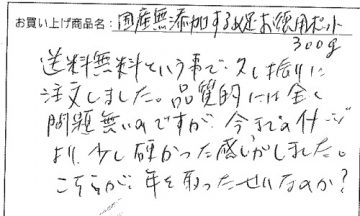 お買い上げ商品名：国産無添加するめ足お徳用セット
300g
送料無料という事で、久し振りに
注文しました。品質的には全く
問題無いのですが、今までのイメージ
より、少し硬かった感じがしました。
こちらが、年を取ったせいなのか？